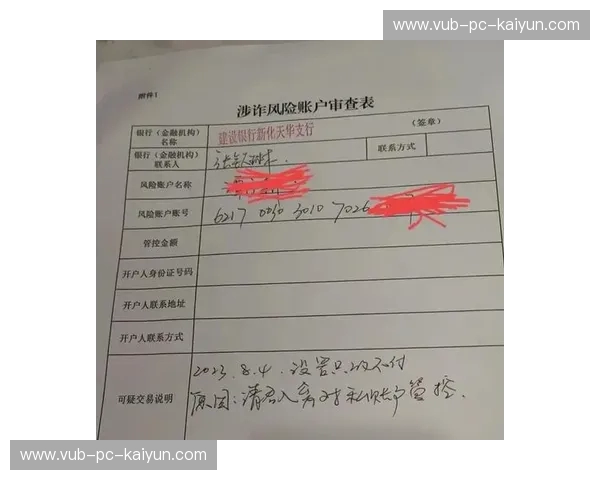 www.vub-pc-kaiyun.com
附件1
涉诈风险账户审查表
银行（金融机构）名称 建设银行新化天华支行 （签章）
银行（金融机构）联系人 联系方式
风险账户名称
风险账户账号 6217 0030 3010 7026
管控金额
开户人身份证号码
开户人联系地址
开户人联系方式
2023.8.4.设置只收不付
可疑交易说明 原因:请君入 对私账户管控.
www.vub-pc-kaiyun.com